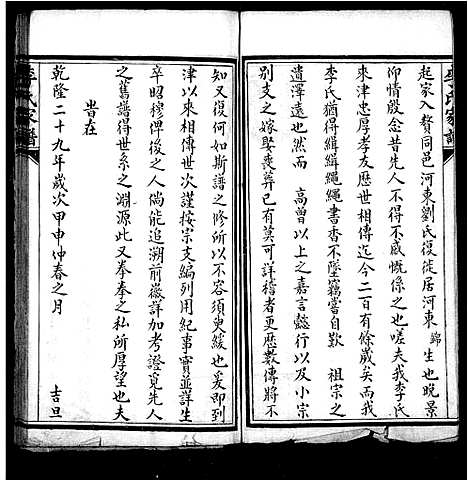 起家入贅同邑河東劉氏復徙居河東錦生也晚景
仰情殷念昔先人不得不感慨係之也嗟夫我李氏
來津忠厚孝友歷世相傳迄今二百有餘歲矣而我
李氏猶得緝緝繩繩書香不墜竊嘗自歎祖宗之
遺澤遠也然而高曾以上之嘉言懿行以及小宗
別支之嫁娶喪葬已有莫可詳稽者更歷數傳將不
知又復何如斯譜之修所以不容須臾緩也爰即到
津以來相傳世次謹按宗支編列用紀事實並詳生
卒昭穆俾後之人倘能追溯前徽詳加考證覓先人
之舊譜得世系之淵源此又拳拳之私所厚望也夫
旹在
乾隆二十九年歲次甲申仲春之月吉旦
李氏家譜